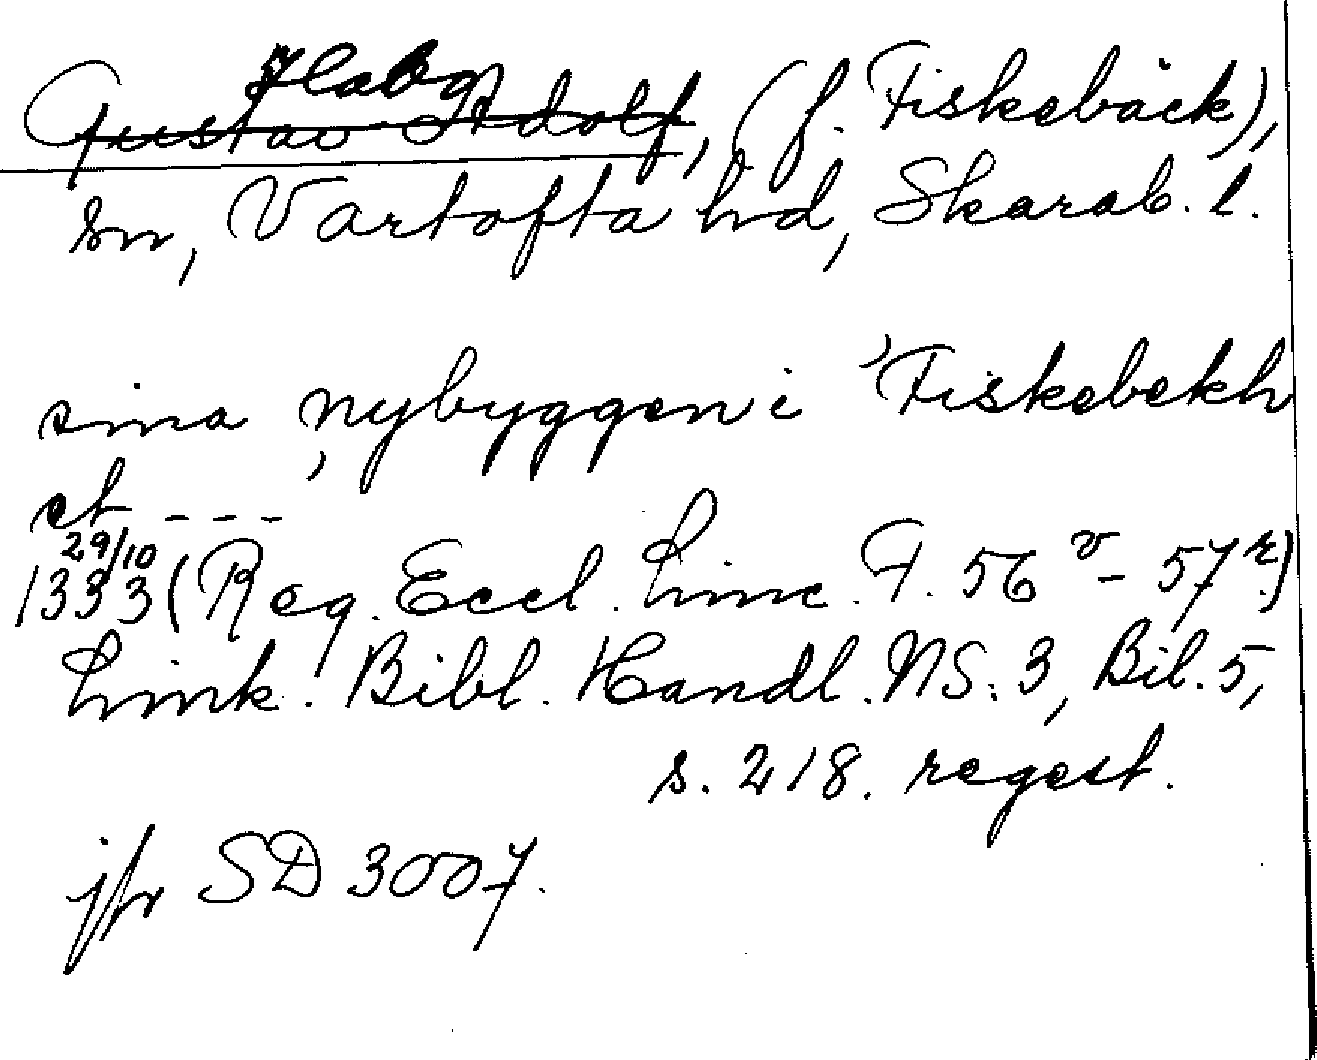 Habo
Gustav Adolf, (f. Fiskebäck),
sn, Vartofta hd, Skarab. l.
sina nybyggen i Fiskebekh
et - - -
29/10
1333 (Reg. Eccl. Linc. F. 56 v - 57 r)
Link. Bibl. Handl. NS. 3, Bil. 5,
s. 218. regest.
jfr SD 3007.